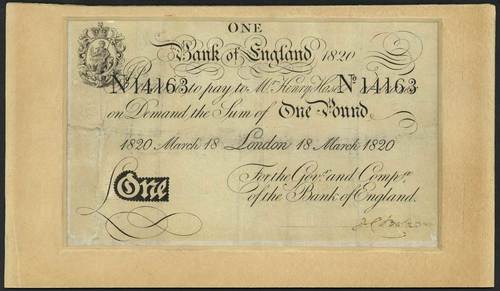 ONE
Bank of England 1820
Nº 14163 to pay to Mr. Henry Hase Nº 14163
on Demand the Sum of One Pound
1820 March 18 London 18 March 1820
For the Govr. and Compa.
of the Bank of England.
One